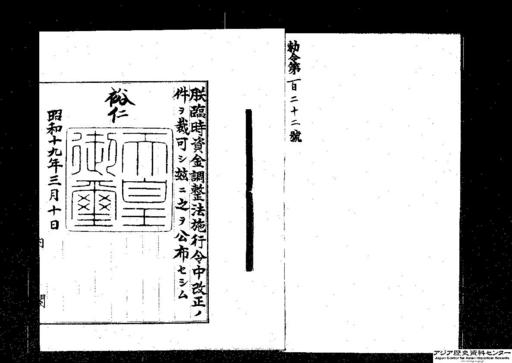 勅令第百二十二號
朕臨時資金調整法施行令中改正ノ
件ヲ裁可シ玆ニ之ヲ公布セシム
裕仁
天皇
御璽
昭和十九年三月十日
内閣
アジア歴史資料センター
Japan Center for Asian Historical Records